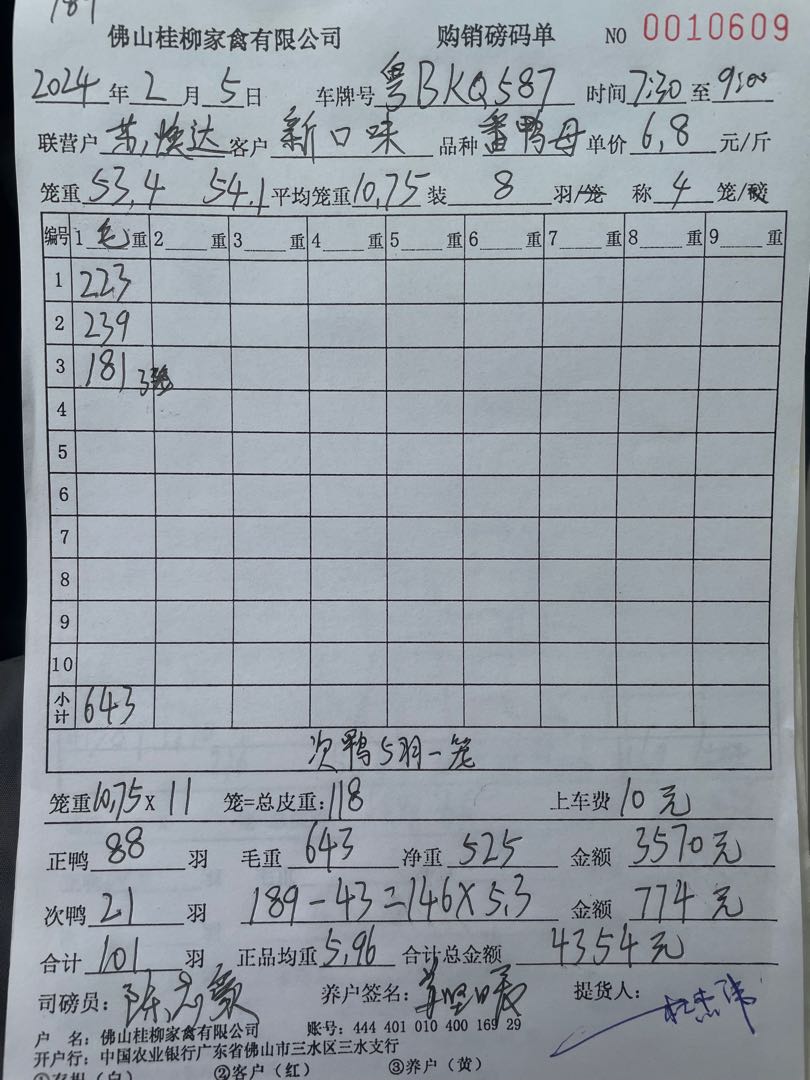 佛山桂柳家禽有限公司 购销磅码单 NO 0010609
2024年2月5日 车牌号 粤BKQ587 时间7:30至9:00
联营户 客户 新口味 品种 番鸭母 单价 6.8 元/斤
笼重 53.4 54.1 平均笼重 10.75 装 8 羽/笼 称 4 笼/磅
编号 1 毛 重 2 重 3 重 4 重 5 重 6 重 7 重 8 重 9 重
1 223
2 239
3 181 3笼
4
5
6
7
8
9
10
小计 643
次鸭5羽一笼
笼重10.75X 11 笼=总皮重:118 上车费 10元
正鸭 88 羽 毛重 643 净重 525 金额 3570元
次鸭 21 羽 189-43=146X5.3 金额 774元
合计 101 羽 正品均重 5.96 合计总金额 4354元
司磅员: 养户签名: 提货人:
户 名: 佛山桂柳家禽有限公司 账号: 444 401 010 400 169 29
开户行: 中国农业银行广东省佛山市三水区三水支行
①存根(白) ②客户(红) ③养户(黄)